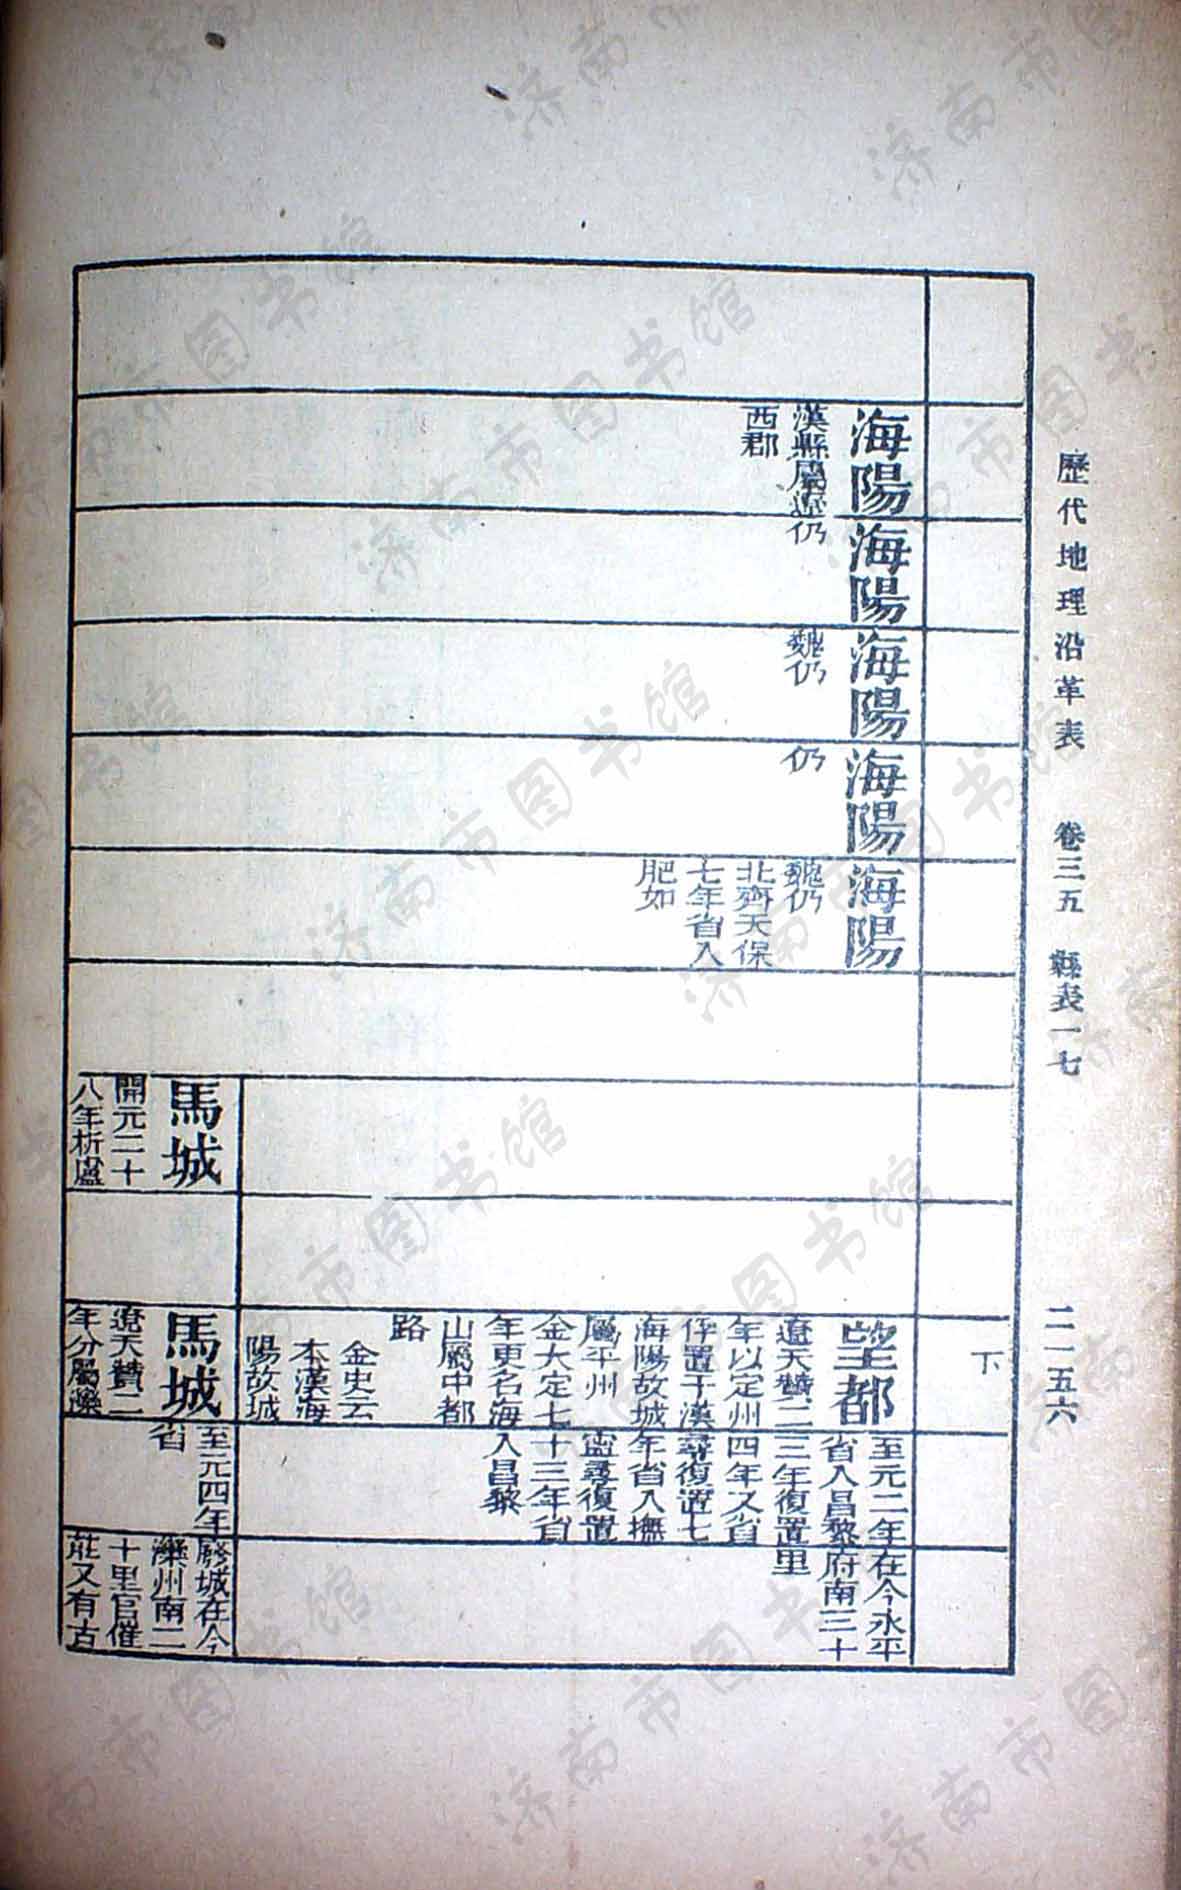 歷代地理沿革表　卷三五　縣表一七　二一五六
下
海陽
漢縣屬遼
西郡
海陽
仍
海陽
魏仍
海陽
仍
海陽
魏仍
北齊天保
七年省入
肥如
望都
遼天贊二
年以定州
俘置于漢
海陽故城
屬平州
金大定七
年更名海
山屬中都
路
金史云
本漢海
陽故城
至元二年
省入昌黎
三年復置
四年又省
尋復置七
年省入撫
寧尋復置
十三年省
入昌黎
在今永平
府南三十
里
馬城
開元二十
八年析盧
馬城
遼天贊二
年分屬灤
至元四年
省
廢城在今
灤州南二
十里官催
莊又有古
济南市图书馆